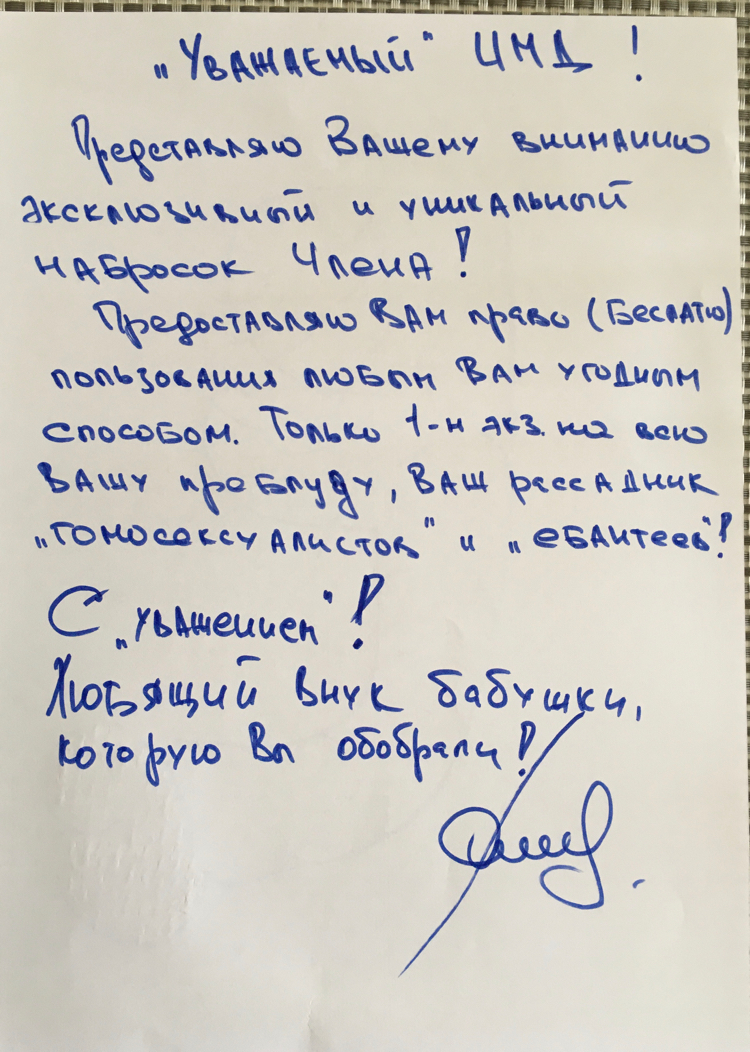 „Уважаемый" ЦМД !
Представляю Вашему вниманию
эксклюзивный и уникальный
набросок Члена !
Предоставляю Вам право (Бесплатно)
пользования любым Вам угодным
способом. Только 1-н экз. на всю
Вашу преблуду, Ваш рассадник
„гомосексуалистов" и „ебантеев"!
С „уважением" !
Любящий внук бабушки,
которую Вы обобрали !